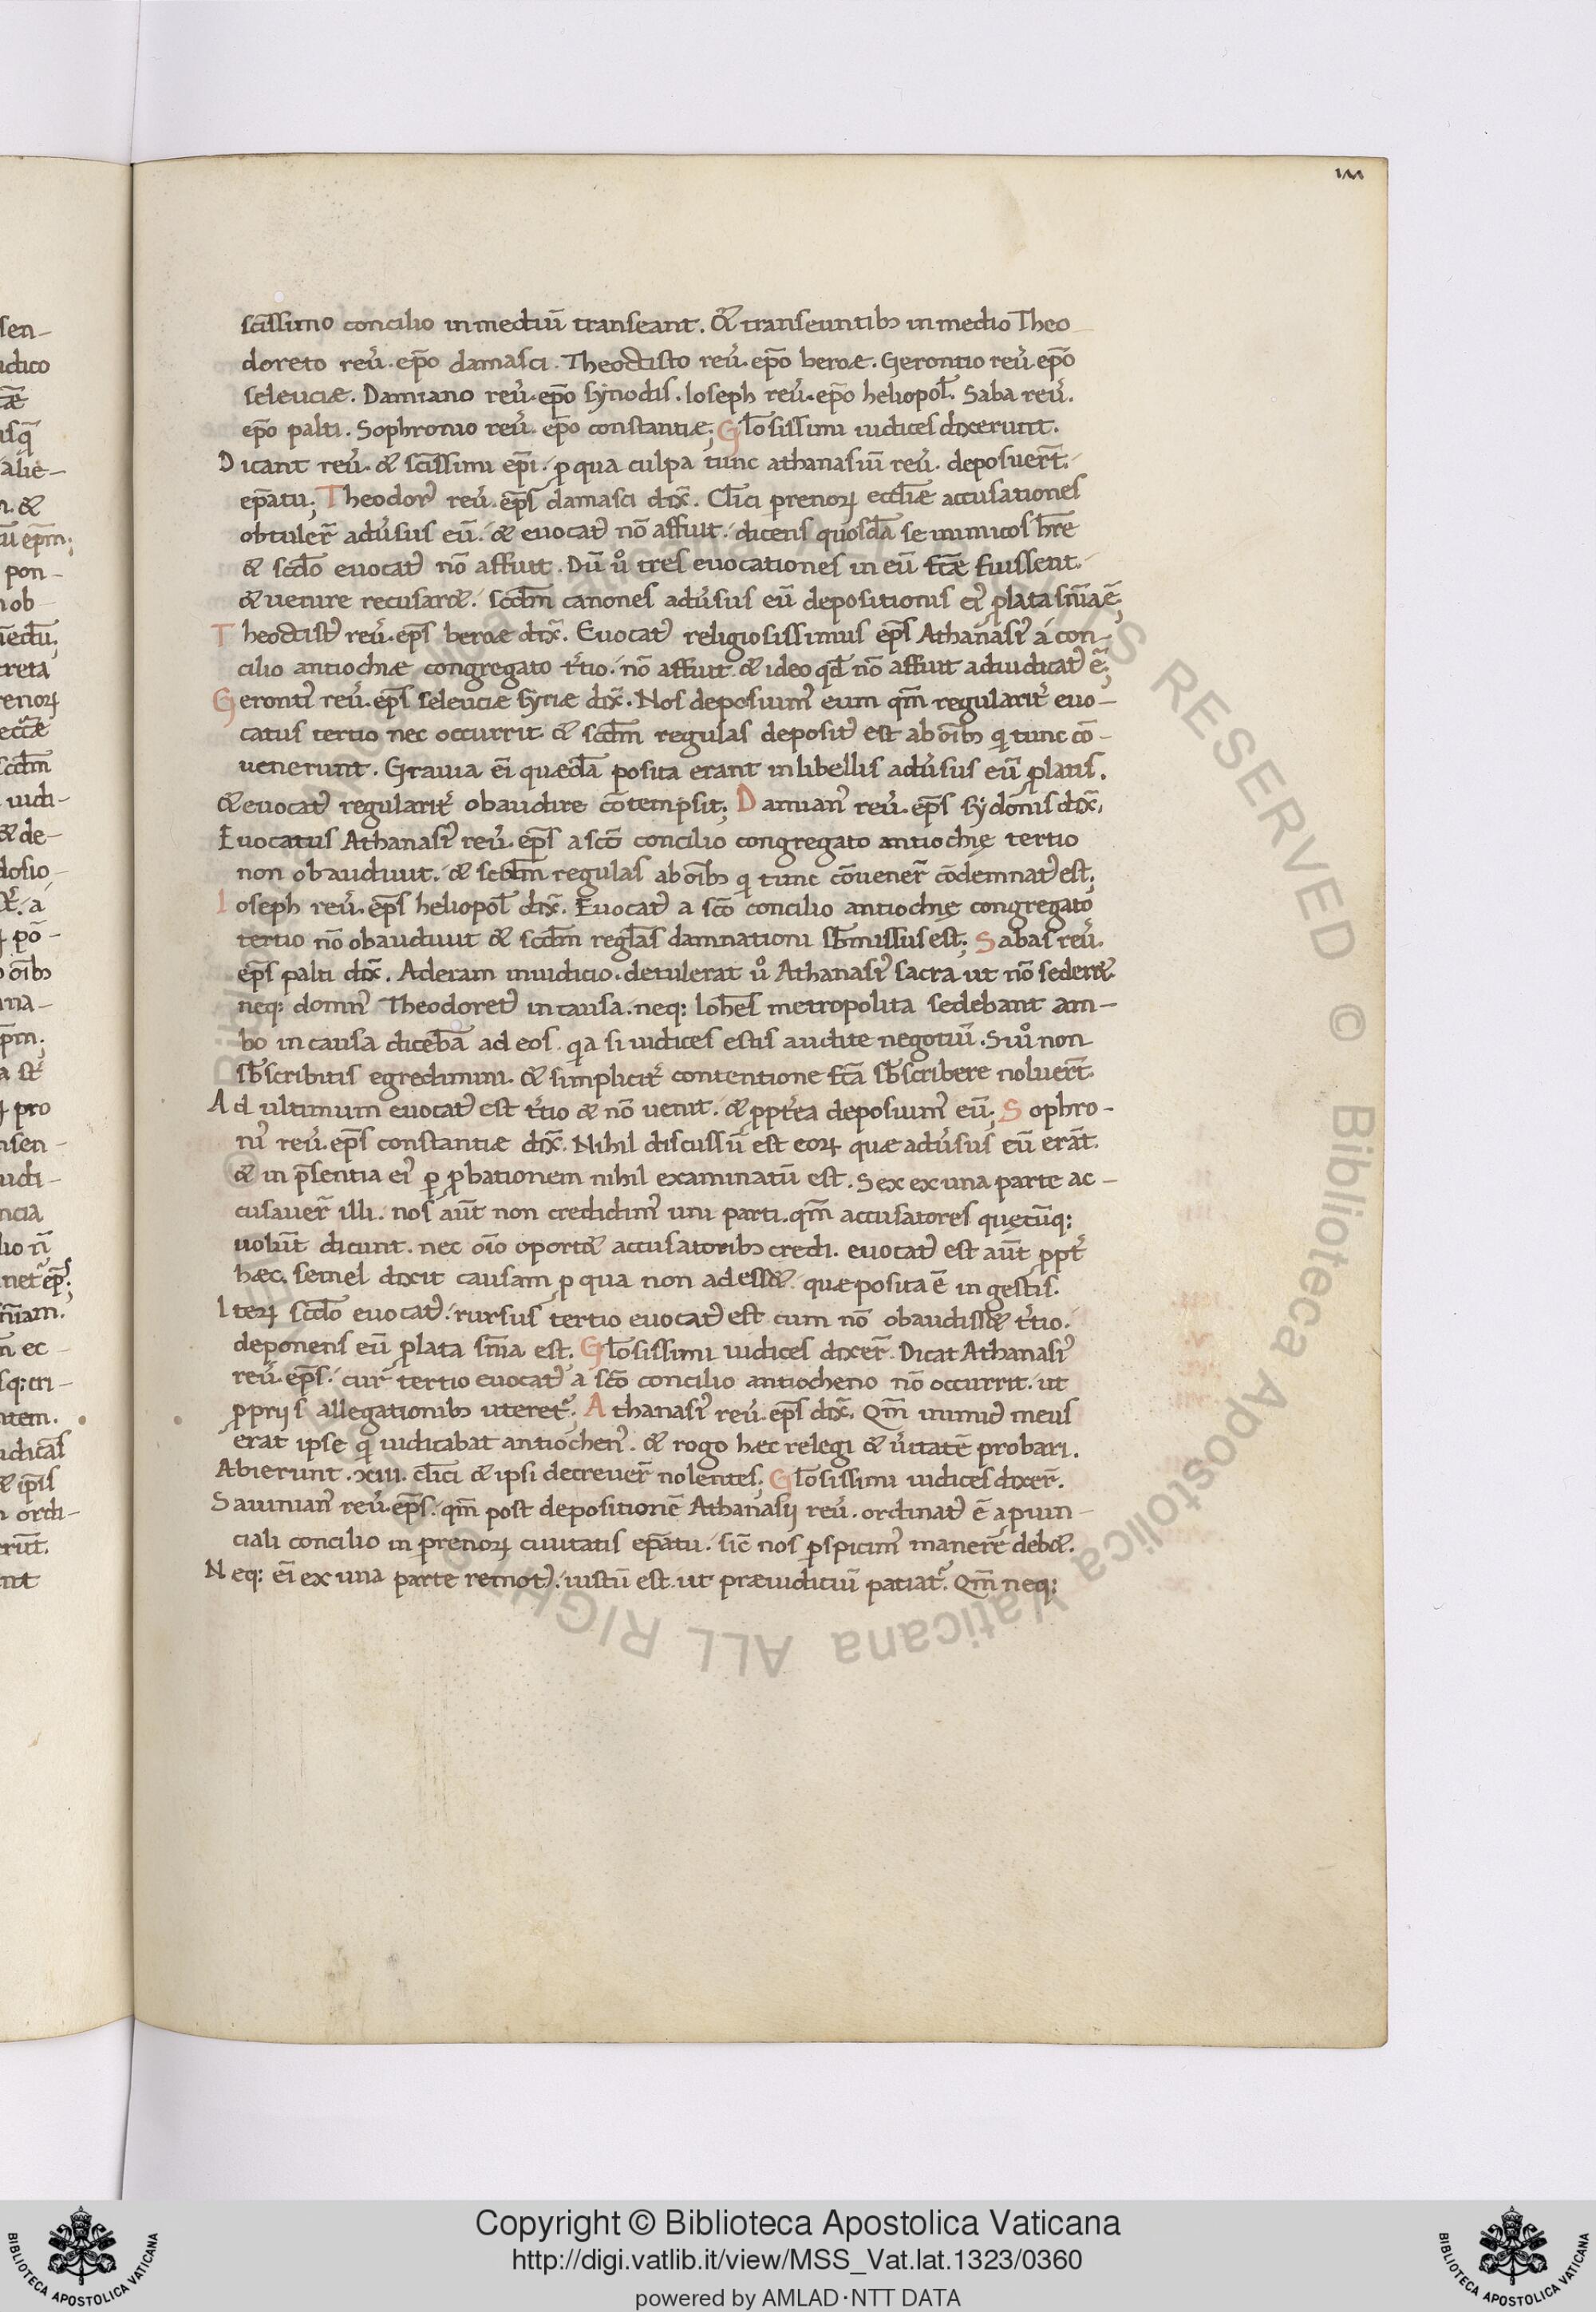 scissimo concilio in mediū transeant. & transeuntibꝫ in medio Theo
doreto reu̓. ep̄o damasci. Theoctisto reu̓. ep̄o beroæ. Gerontio reu̓. ep̄o
seleuciæ. Damiano reu̓. ep̄o synodis. Ioseph reu̓. ep̄o heliopol̄. Saba reu̓.
ep̄o palti. Sophronio reu̓. ep̄o constantiæ; Gl̄osissimi iudices dixerunt.
Dicant reu̓. & sc̄issimi ep̄i. ꝓ qua culpa tunc athanasiū reu̓. deposuer̄t.
ep̄atu; Theodorꝰ reu̓. ep̄s damasci dix̄. Cl̄ici prenoꝝ eccl̄iæ accusationes
obtuler̄ adu̓sus eū. & euocatꝰ nō affuit. dicens quosdā se inimicos hr̄e
& scd̄o euocatꝰ nō affuit. Dū u̓o tres euocationes in eū fc̄æ fuissent.
& uenire recusar&. scd̄m canones adu̓sus eū depositionis eiꝰ ꝓlata sn̄ia ē;
Theoctistꝰ reu̓. ep̄s beroæ dix̄. Euocatꝰ religiosissimus ep̄s Athanasiꝰ á con-
cilio antiochiæ congregato t̓tio. nō affuit & ideo qd̄ nō affuit adiudicatꝰ ē;
Gerontiꝰ reu̓. ep̄s seleuciæ syriæ dix̄. Nos deposuimꝰ eum qm̄ regularit̓ euo-
catus tertio nec occurrit & scd̄m regulas depositꝰ est ab oīb; q̇ tunc cō-
uenerunt. Grauia ei quædā posita erant in libellis adu̓sus eū ꝓlatis.
& euocatꝰ regularit̓ obaudire cōtempsit; Damianꝰ reu̓. ep̄s sydonis dix̄.
Euocatus Athanasiꝰ reu̓. ep̄s a sc̄o concilio congregato antiochię tertio
non obaudiuit. & scd̄m regulas ab oīb; q̇ tunc cōuener̄ cōdemnatꝰ est;
Ioseph reu̓. ep̄s heliopol̄ dix̄. Euocatꝰ a sc̄o concilio antiochię congregato
tertio nō obaudiuit & scd̄m regl̄as damnationi sb̄missus est; Sabas reu̓.
ep̄s palti dix̄. Aderam in iudicio. detulerat u̓o Athanasiꝰ sacra ut nō seder&
neq: domnꝰ Theodoretꝰ in causa. neq: Ioh̄es metropolita sedebant am-
bo in causa dicebā ad eos. q̇a si iudices estis audite negotiū. Si u̓o non
sb̄scribitis egredimini. & simplicit̓ contentione fc̄a sb̄scribere noluer̄t.
Ad ultimum euocatꝰ est t̓tio & nō uenit. & ꝓpt̓ea deposuimꝰ eū; Sophro-
niꝰ reu̓. ep̄s constantiæ dix̄. Nihil discussū est eoꝝ quæ adu̓sus eū erāt.
& in p̄sentia eiꝰ ꝑ ꝓbationem nihil examinatū est. Sex ex una parte ac-
cusauer̄ illi. nos aūt non credidimꝰ uni parti. qm̄ accusatores quęcūq:
uolūt dicunt. nec oīo oport& accusatorib; credi. euocatꝰ est aūt ꝓpt̓
hæc. semel dixit causam ꝓ qua non adess&. quæ posita ē in gestis.
Iteꝝ scd̄o euocatꝰ. rursus tertio euocatꝰ est cum nō obaudiss& t̓tio.
deponens eū ꝓlata sn̄ia est. Gl̄osissimi iudices dixer̄. Dicat Athanasiꝰ
reu̓. ep̄s. cur tertio euocatꝰ a sc̄o concilio antiocheno nō occurrit. ut
ꝓprijs allegationib; uteret̓. Athanasiꝰ reu̓. ep̄s dix̄. Qm̄ inimicꝰ meus
erat ipse q̇ iudicabat antiochenꝰ. & rogo hæc relegi & u̓itatē probari.
Abierunt .xiii. cl̄ici & ipsi decreuer̄ nolentes; Gl̄osissimi iudices dixer̄.
Sauinianꝰ reu̓. ep̄s. qm̄ post depositionē Athanasij reu̓. ordinatꝰ ē a ꝓuin-
ciali concilio in prenoꝝ ciuitatis ep̄atu. sic̄ nos ꝑspicimꝰ manere deb&.
Neq: ei ex una parte remotꝰ. iustū est ut præiudiciū patiat̓. Qm̄ neq:
Copyright © Biblioteca Apostolica Vaticana
http://digi.vatlib.it/view/MSS_Vat.lat.1323/0360
powered by AMLAD·NTT DATA